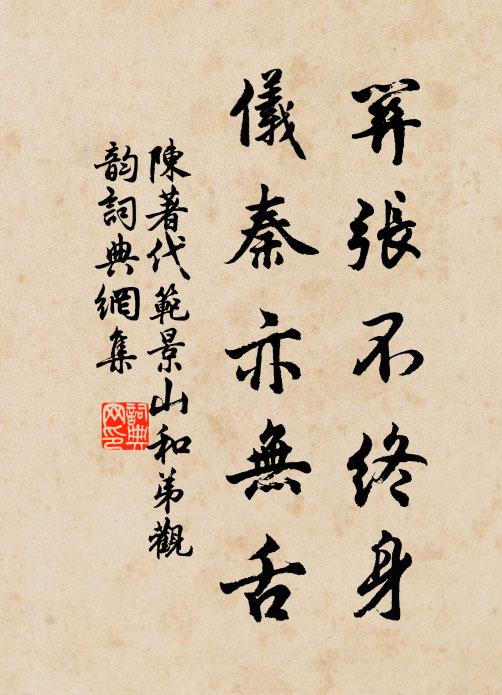 羿張不終身
儀秦亦無舌
陳著代範景山和弟觀
韵詞典網集
詞典
网印